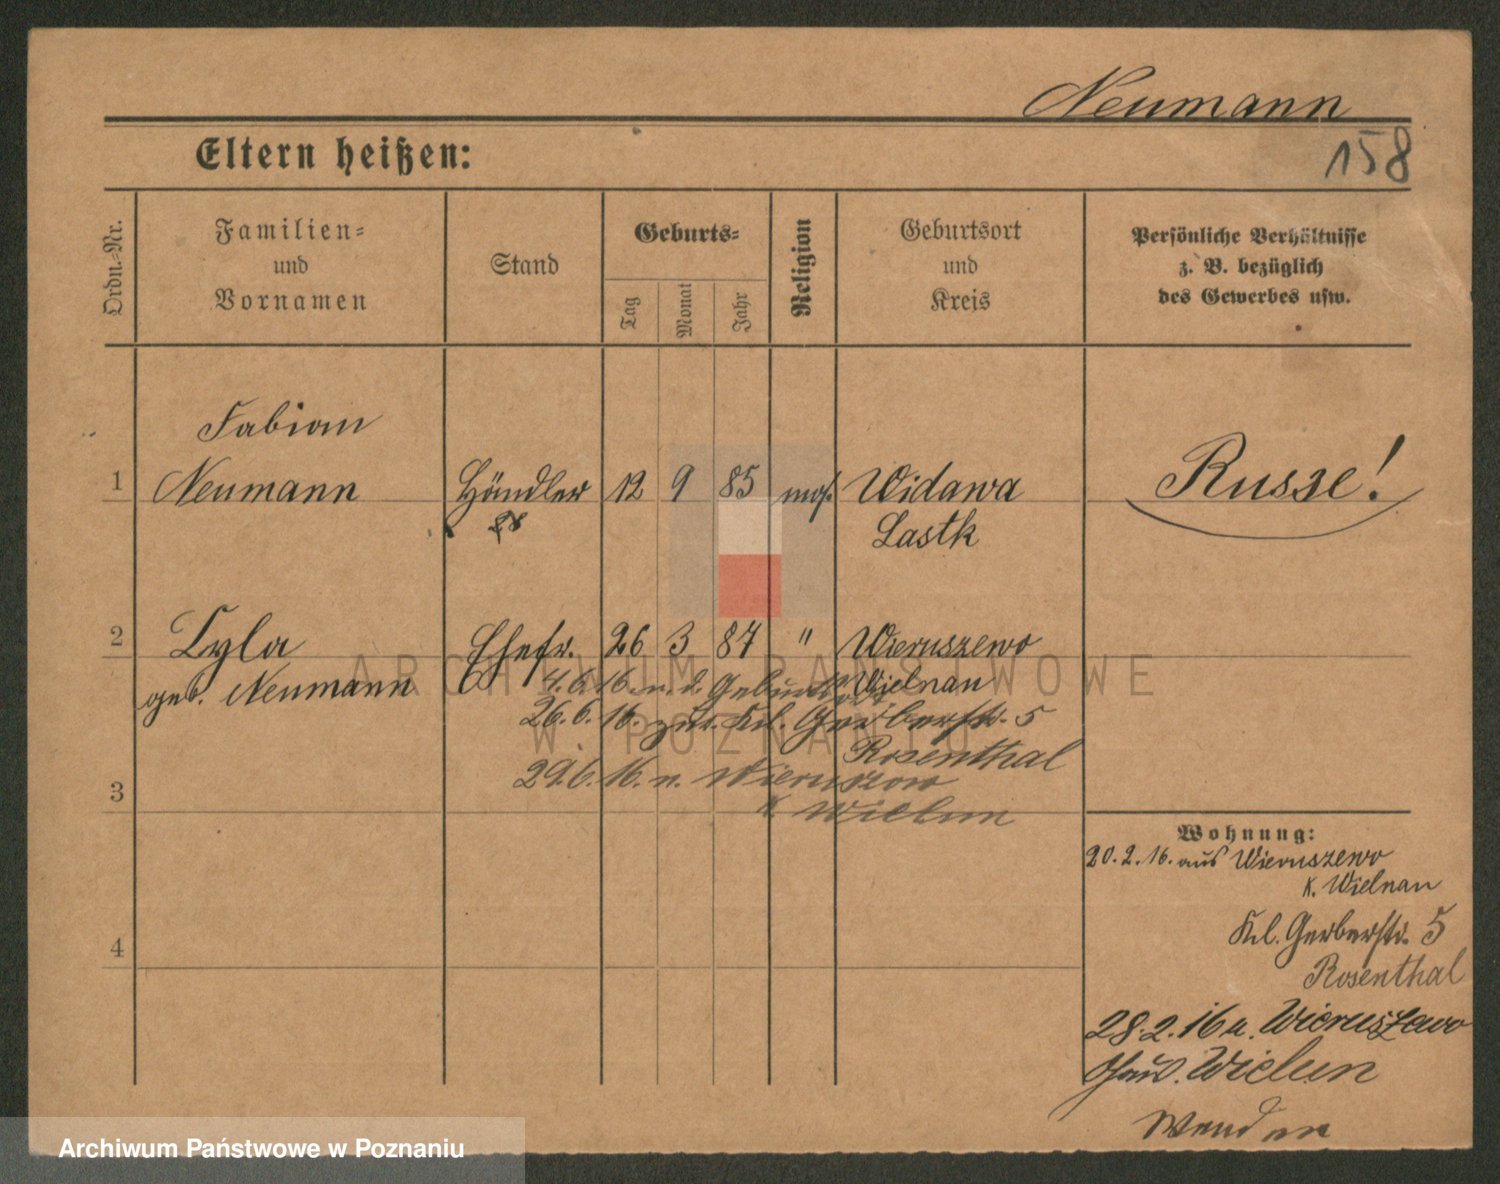 Neumann
158
Eltern heißen:
Ordn.-Nr.
Familien-
und
Vornamen
Stand
Geburts-
Tag
Monat
Jahr
Religion
Geburtsort
und
Kreis
Persönliche Verhältnisse
z. B. bezüglich
des Gewerbes usw.
Fabian
1 Neumann Händler 12 9 85 mos. Widawa Russe!
Lastk
2 Lyla Ehefr. 26 3 87 " Wieruszewo
geb. Neumann
4.6.16. n. d. Wielnan
26.6.16. zur. Kl. Gerberstr. 5
Rosenthal
29.6.16. n. Wieruszow
3
K. Wielun
Wohnung:
20.2.16. aus Wieruszewo
K. Wielnan
Kl. Gerberstr. 5
4
Rosenthal
28.2.16 n. Wieruszewo
Wielun
Wenden
ARCHIWUM PAŃSTWOWE
W POZNANIU
Archiwum Państwowe w Poznaniu